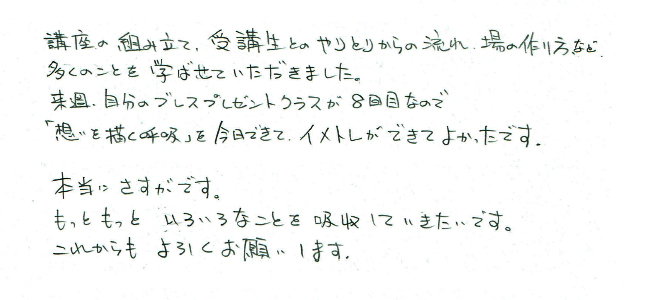 講座の組み立て、受講生とのやりとりからの流れ、場の作り方など
多くのことを学ばせていただきました。
来週、自分のブレスプレゼントクラスが8回目なので
「想いを描く呼吸」を今日できて、イメトレができてよかったです。
本当にさすがです。
もっともっと いろいろなことを吸収していきたいです。
これからも よろしくお願いします。